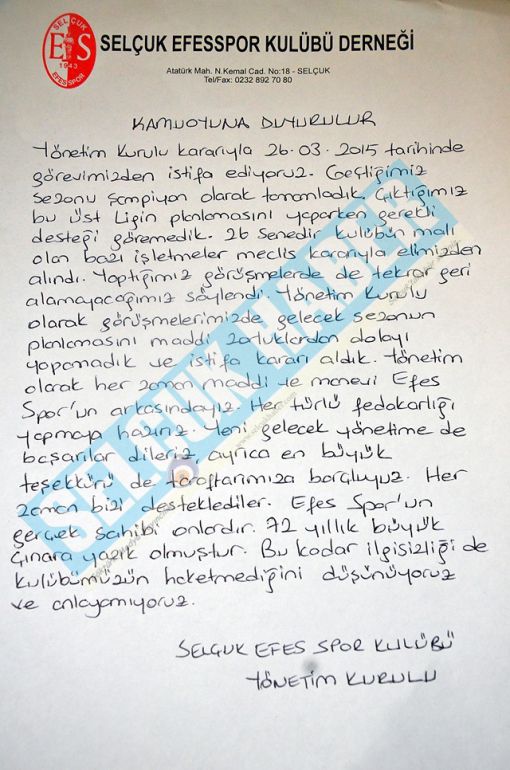 SELÇUK
EFS
1943
EFES SPOR
SELÇUK EFESSPOR KULÜBÜ DERNEĞİ
Atatürk Mah. N.Kemal Cad. No:18 - SELÇUK
Tel/Fax: 0232 892 70 80
KAMUOYUNA DUYURULUR
Yönetim Kurulu kararıyla 26.03.2015 tarihinde
görevimizden istifa ediyoruz. Geçtiğimiz
sezonu şampiyon olarak tamamladık. Çıktığımız
bu Üst Ligin planlamasını yaparken gerekli
desteği göremedik. 26 senedir kulübün malı
olan bazı işletmeler meclis kararıyla elimizden
alındı. Yaptığımız görüşmelerde de tekrar geri
alamayacağımız söylendi. Yönetim Kurulu
olarak görüşmelerimizde gelecek sezonun
planlamasını maddi zorluklardan dolayı
yapamadık ve istifa kararı aldık. Yönetim
olarak her zaman maddi ve manevi Efes
Spor'un arkasındayız. Her türlü fedakarlığı
yapmaya hazırız. Yeni gelecek yönetime de
başarılar dileriz, ayrıca en büyük
teşekkürü de taraftarımıza borçluyuz. Her
zaman bizi desteklediler. Efes Spor'un
gerçek sahibi onlardır. 72 yıllık büyük
Çınara yazık olmuştur. Bu kadar ilgisizliği de
kulübümüzün haketmediğini düşünüyoruz
ve anlayamıyoruz.
SELÇUK EFES SPOR KULÜBÜ
YÖNETİM KURULU
SELÇUK HABER